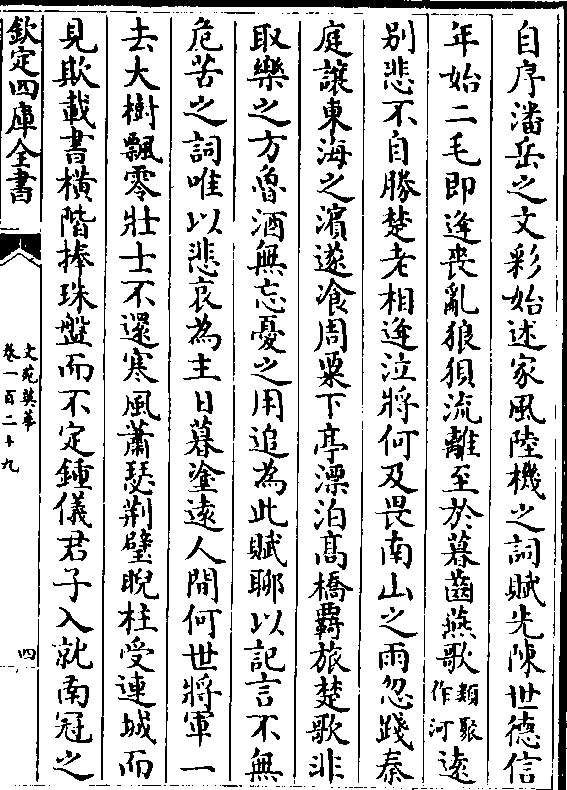 自序潘岳之文彩始述家風陸機之詞賦先陳世德信
年始二毛即逢喪亂狼狽流離至於暮齒燕歌類聚作河逺
别悲不自勝楚老相逢泣將何及畏南山之雨忽踐秦
庭讓東海之濱遂飡周粟下亭漂泊髙橋羇旅楚歌非
取樂之方魯酒無忘憂之用追為此賦聊以記言不無
危苦之詞唯以悲哀為主日暮塗逺人間何世將軍一
去大樹飄零壯士不還寒風蕭瑟荆璧睨柱受連城而
見欺載書橫階捧珠盤而不定鍾儀君子入就南冠之
欽定四庫全書
文苑英華
卷一百二十九
四